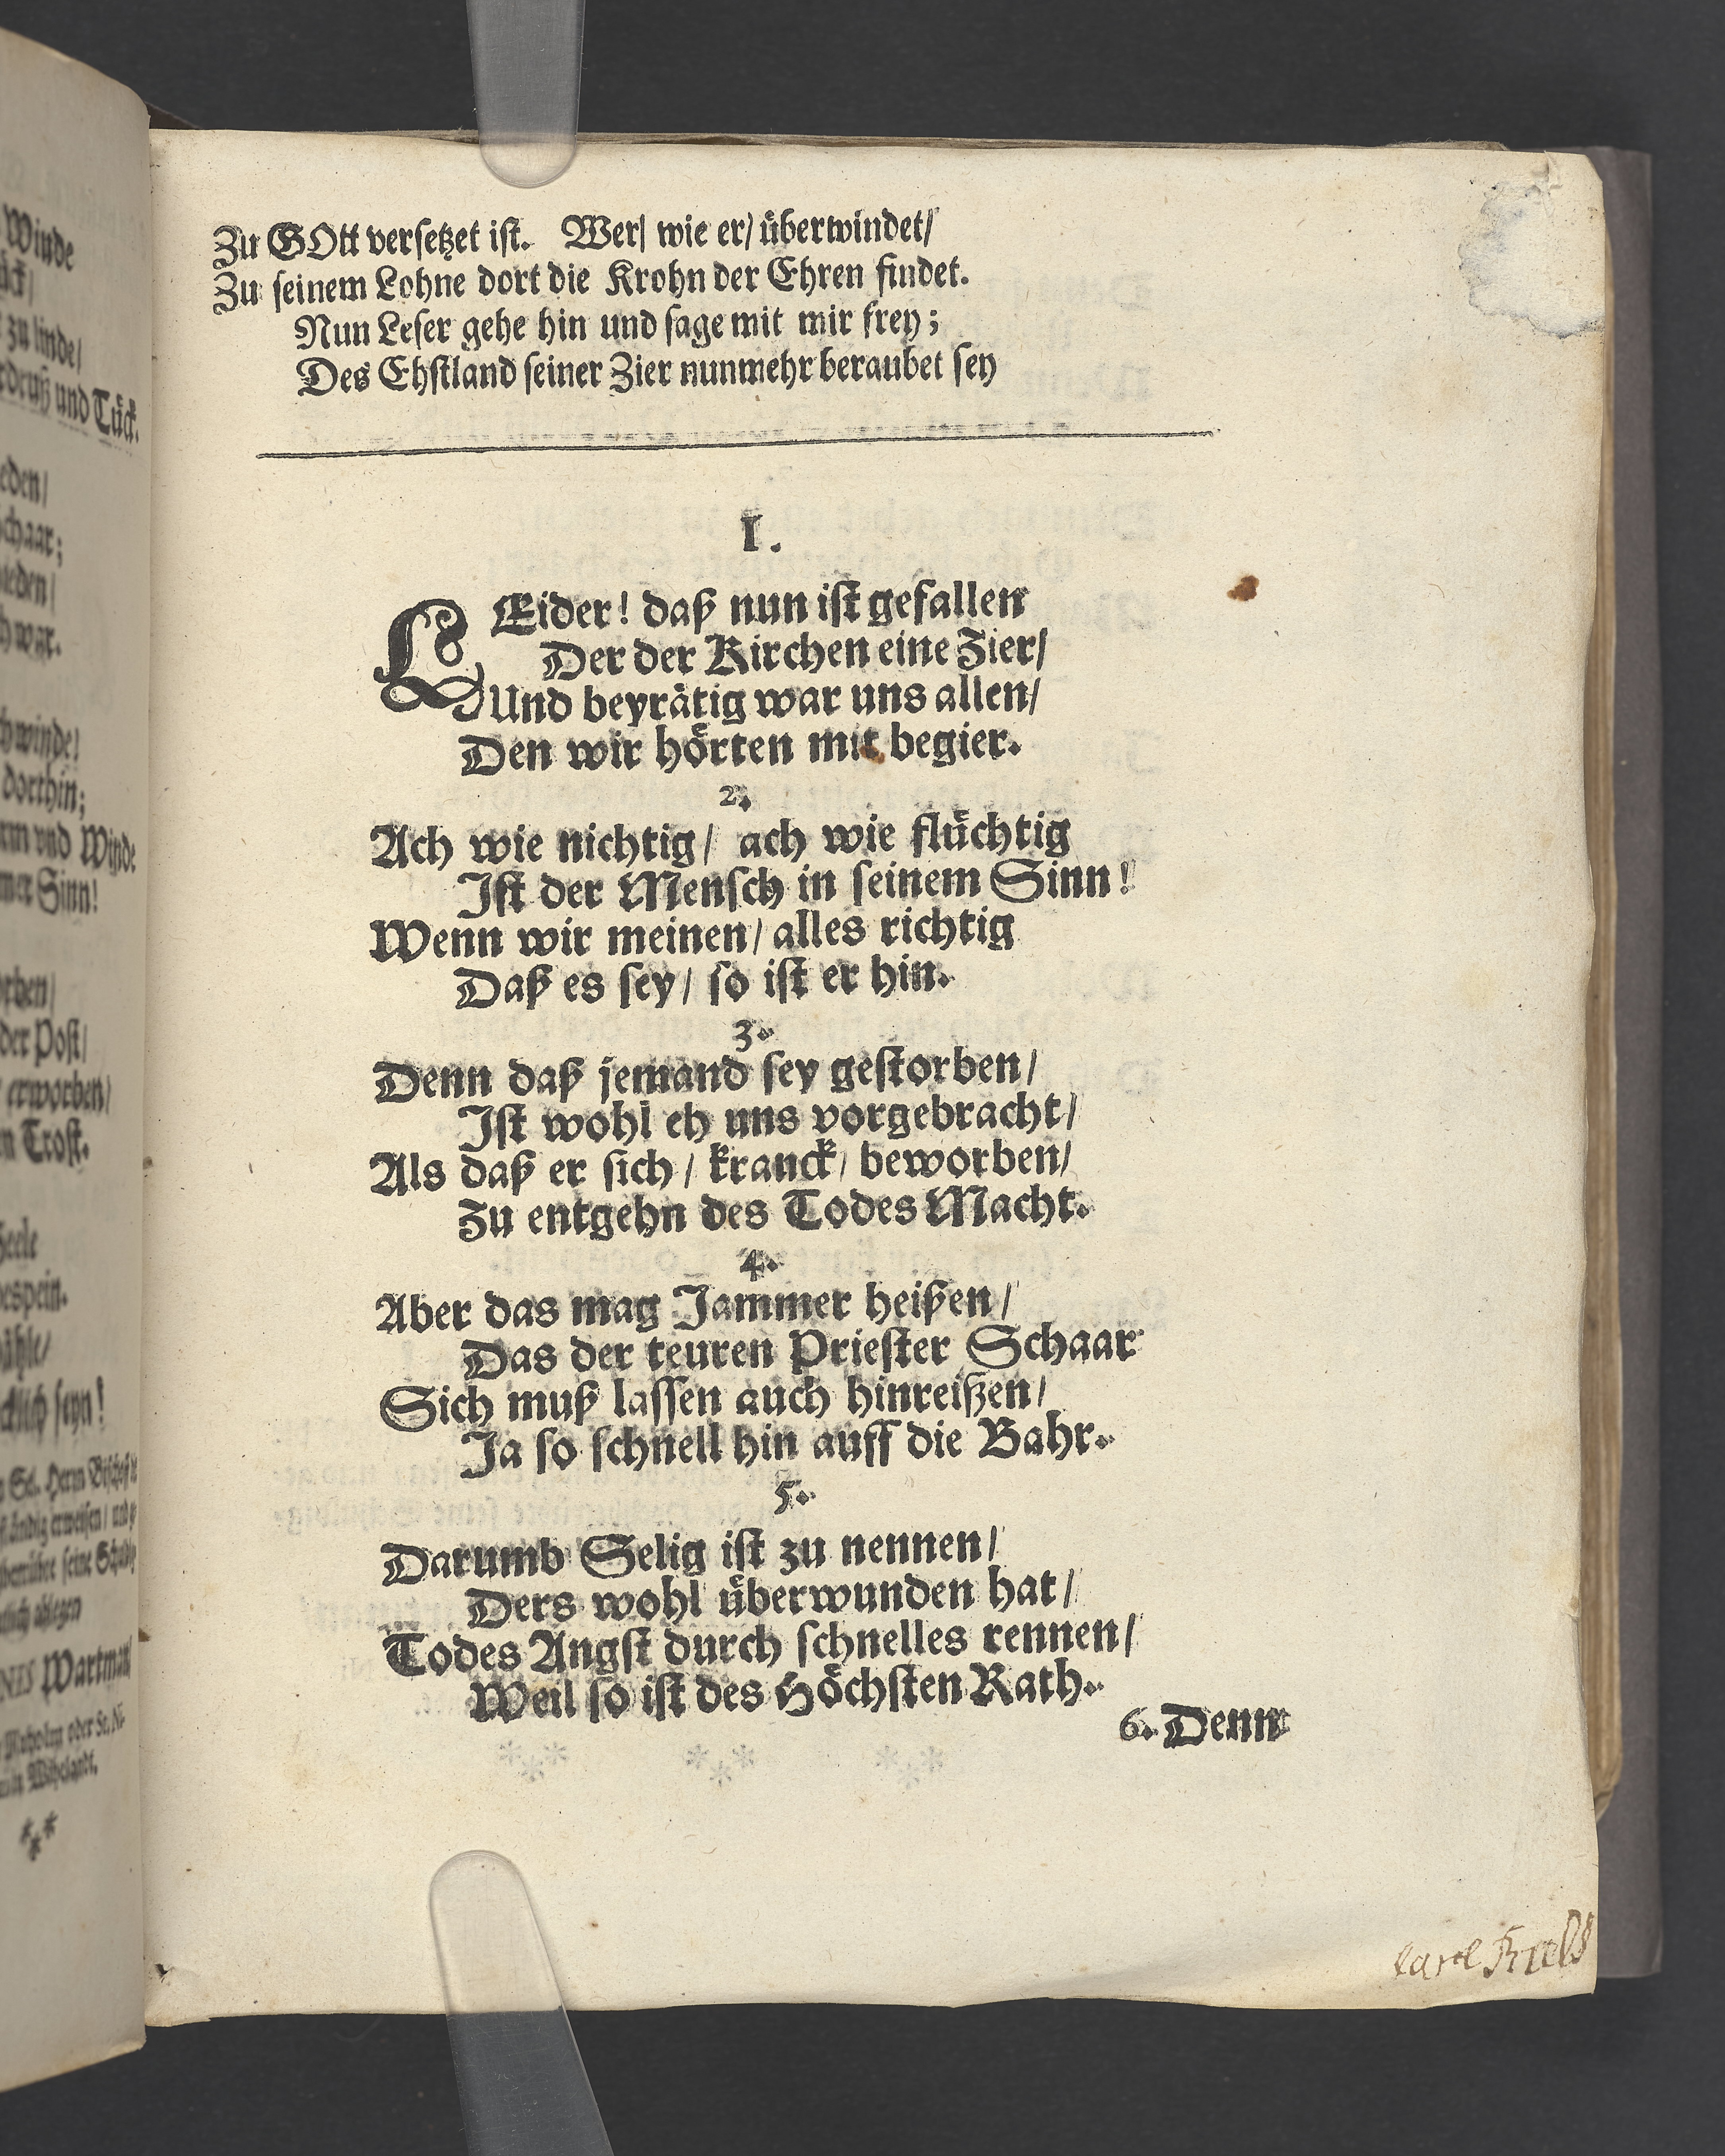 Winde
zu linde/
und Tück.
schaar;
war.
dorthin;
und Winde
Sinn!
der Post/
erworben/
Trost.
seyn!
Wartman/
Zu GOtt versetzet ist. Wer/ wie er/ überwindet/
Zu seinem Lohne dort die Krohn der Ehren findet.
Nun Leser gehe hin und sage mit mir frey;
Des Ehstland seiner Zier nunmehr beraubet sey
I.
LEider! daß nun ist gefallen
Der der Kirchen eine Zier/
Und beyrätig war uns allen/
Den wir hörten mit begier.
2.
Ach wie nichtig/ ach wie flüchtig
Ist der Mensch in seinem Sinn!
Wenn wir meinen/ alles richtig
Daß es sey/ so ist er hin.
3.
Denn daß jemand sey gestorben/
Ist wohl eh uns vorgebracht/
Als daß er sich/ kranck/ beworben/
Zu entgehn des Todes Macht.
4.
Aber das mag Jammer heißen/
Das der teuren Priester Schaar
Sich muß lassen auch hinreißen/
Ja so schnell hin auff die Bahr.
5.
Darumb Selig ist zu nennen/
Ders wohl überwunden hat/
Todes Angst durch schnelles rennen/
Weil so ist des Höchsten Rath.
6. Denn